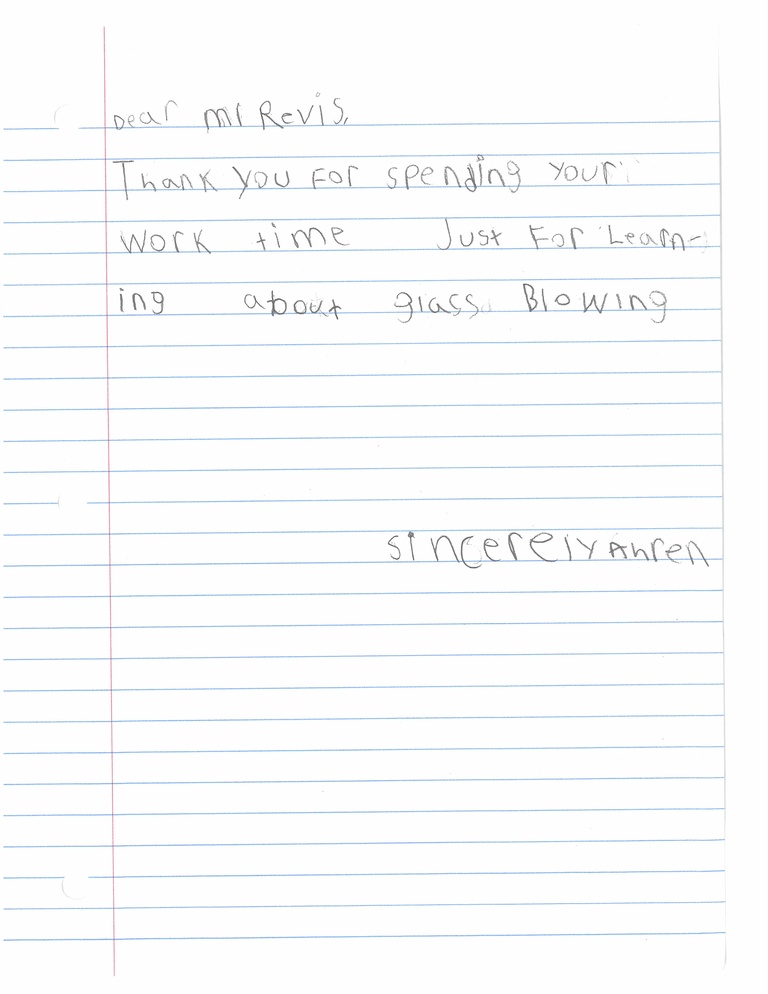 Dear Mr Revis,
Thank you For spending your
work time Just For Learn-
ing about glass Blowing
sincerely Ahren